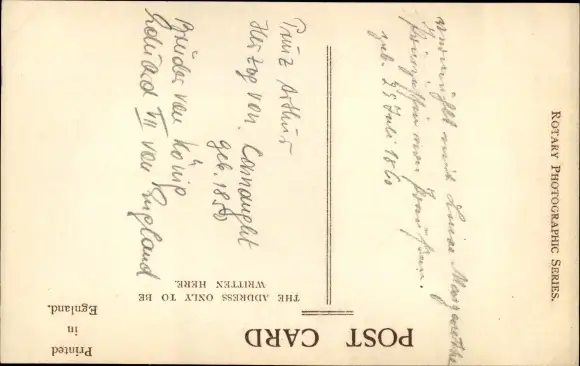 POST CARD
THE ADDRESS ONLY TO BE
WRITTEN HERE.
Printed
in
Egnland.
ROTARY PHOTOGRAPHIC SERIES.
vermählt mit Luise Margarethe
Prinzessin von Preußen.
geb. 25 Juli 1860
Prinz Arthur
Herzog von Connaught
geb. 1850
Bruder von König
Eduard VII von England